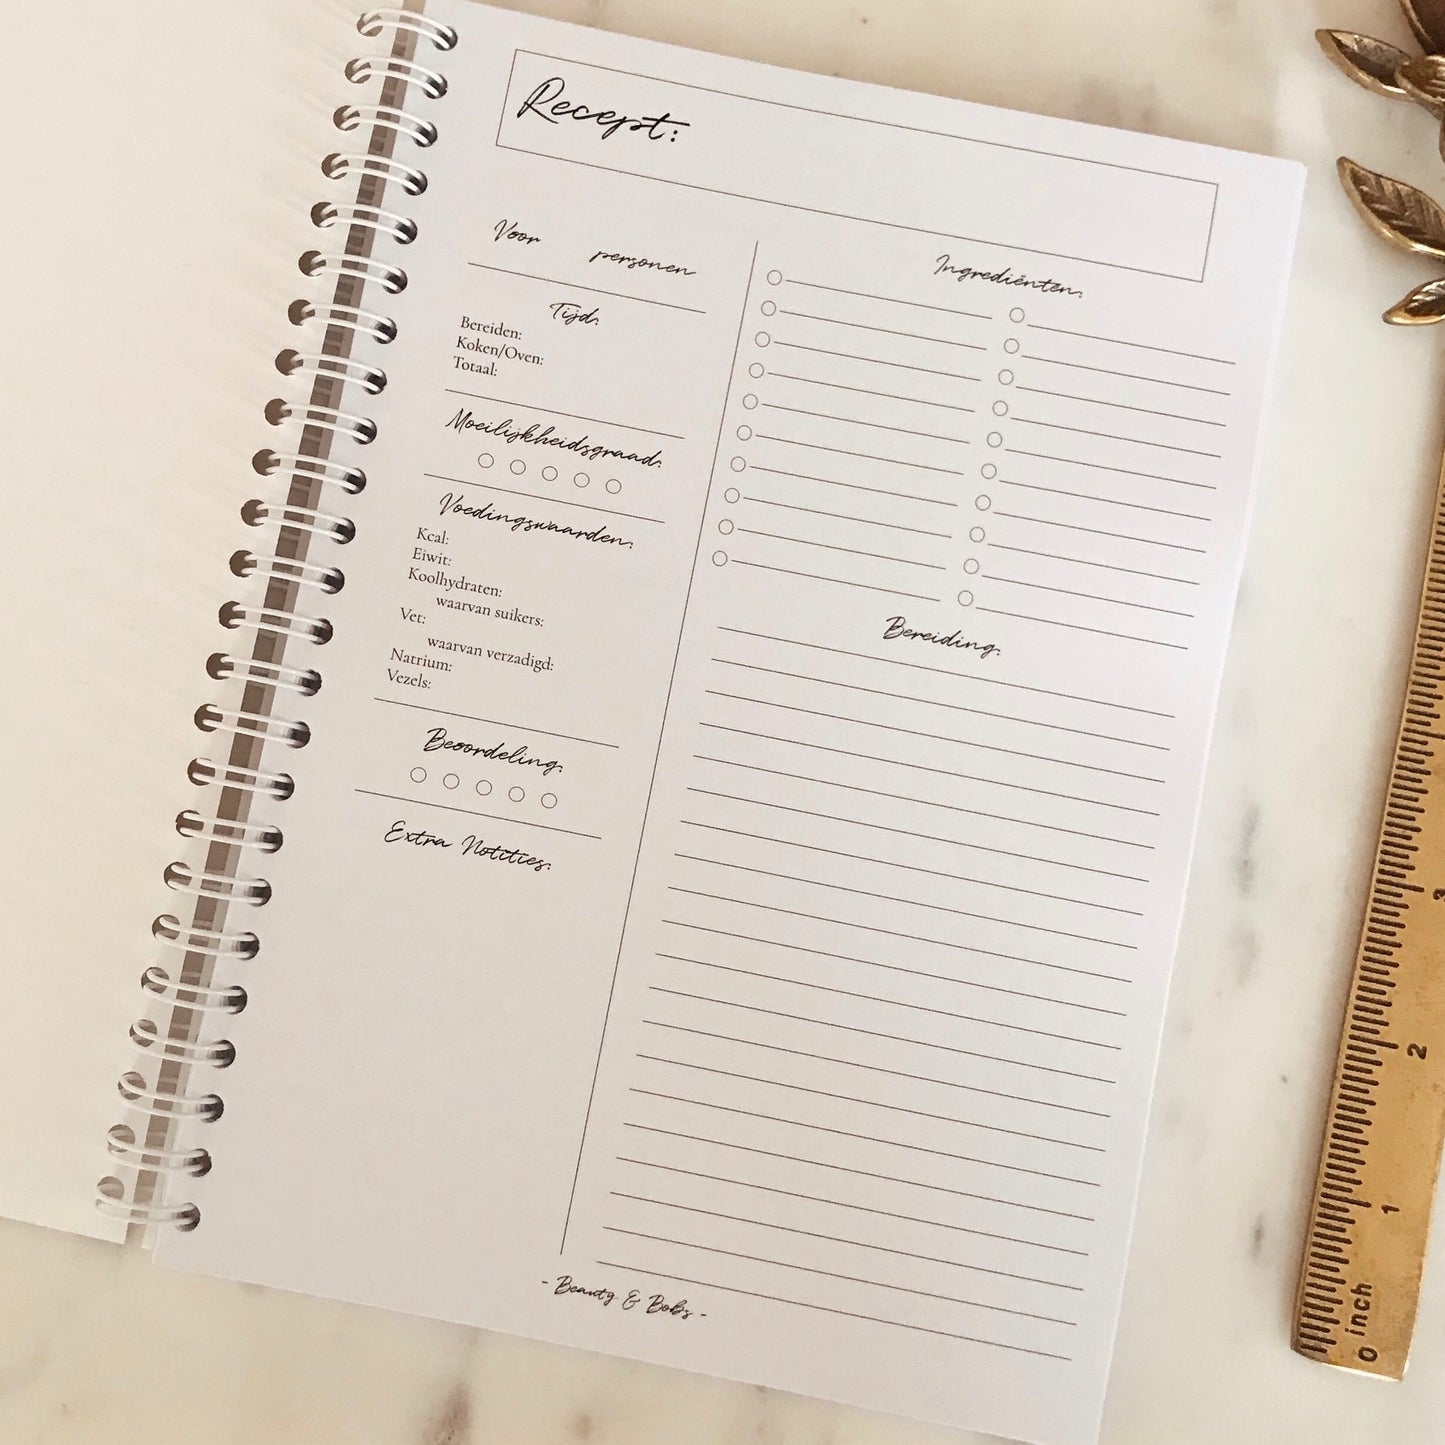 Recept:
Voor personen
Tijd:
Bereiden:
Koken/Oven:
Totaal:
Moeilijkheidsgraad:
Voedingswaarden:
Kcal:
Eiwit:
Koolhydraten:
waarvan suikers:
Vet:
waarvan verzadigd:
Natrium:
Vezels:
Beoordeling:
Extra Notities:
Ingrediënten:
Bereiding:
- Beauty & Bobs -
3
2
1
0 inch